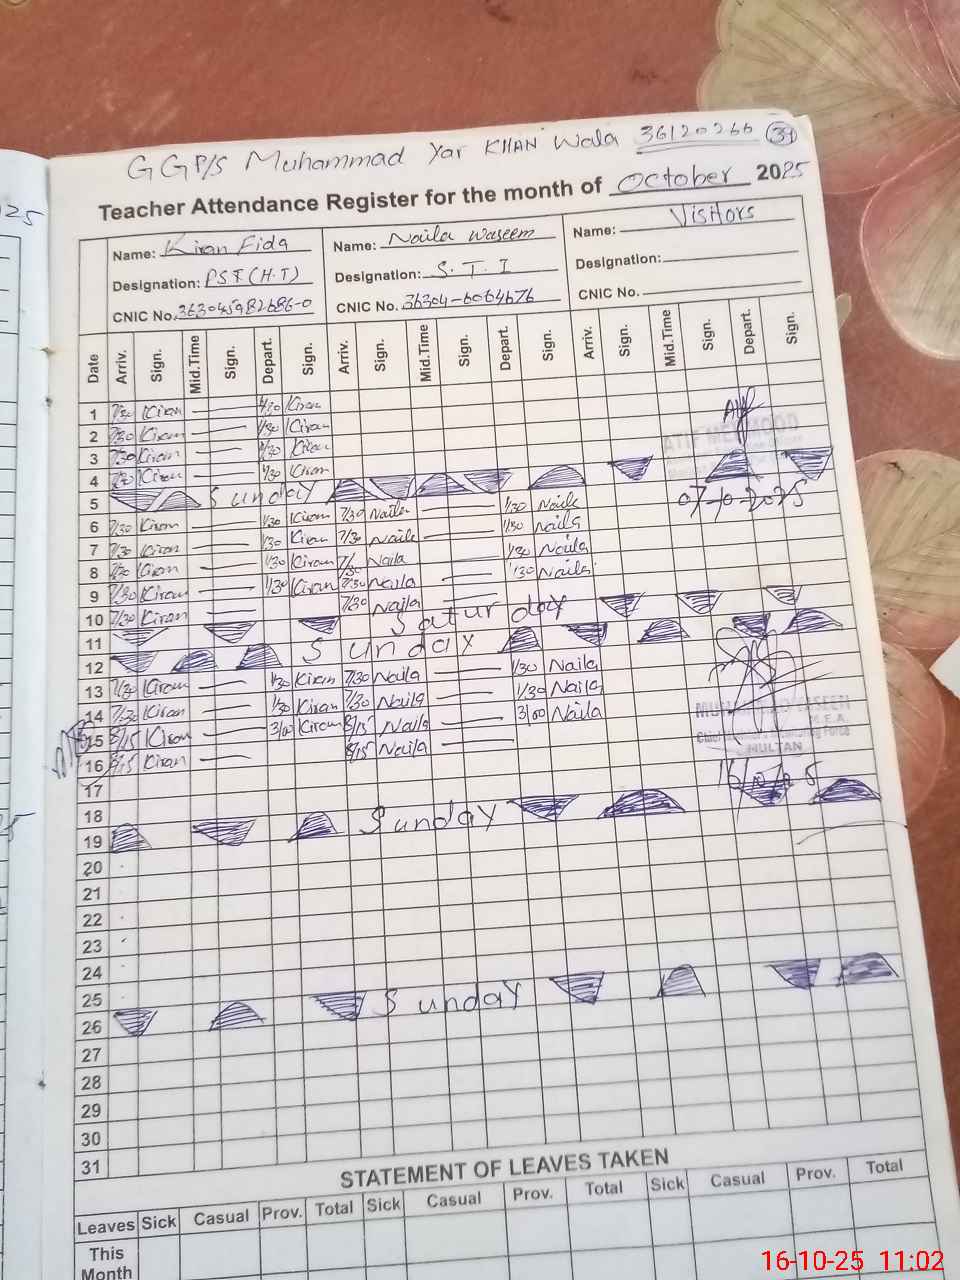 GGP/S Muhammad Yar KHAN Wala 36120266 (31)
Teacher Attendance Register for the month of October 2025
Name: Kiran Fida Name: Naila Waseem Name: Visitors
Designation: PST(H.T) Designation: S.T.I Designation:
CNIC No. CNIC No. 36304-6064676 CNIC No.
Date Arriv. Sign. Mid.Time Sign. Depart. Sign. Arriv. Sign. Mid.Time Sign. Depart. Sign. Arriv. Sign. Mid.Time Sign. Depart. Sign.
1 7/30 Kiran 1/30 Kiran
2 7/30 Kiran 1/30 Kiran
3 7/30 Kiran 1/30 Kiran
4 7/30 Kiran 1/30 Kiran
5 Sunday 07-10-2025
6 7/30 Kiran 1/30 Kiran 7/30 Naila 1/30 Naila
7 7/30 Kiran 1/30 Kiran 7/30 Naila 1/30 Naila
8 7/30 Kiran 1/30 Kiran 7/30 Naila 1/30 Naila
9 7/30 Kiran 1/30 Kiran 7/30 Naila 1/30 Naila
10 7/30 Kiran 7/30 Naila
11 Saturday
12 Sunday
13 7/30 Kiran 1/30 Kiran 7/30 Naila 1/30 Naila
14 7/30 Kiran 1/30 Kiran 7/30 Naila 1/30 Naila
15 8/15 Kiran 3/00 Kiran 8/15 Naila 3/00 Naila
16 8/15 Kiran 8/15 Naila
MULTAN
17
18
19 Sunday
20
21
22
23
24
25
26 Sunday
27
28
29
30
31
STATEMENT OF LEAVES TAKEN
Leaves Sick Casual Prov. Total Sick Casual Prov. Total Sick Casual Prov. Total
This Month
16-10-25 11:02